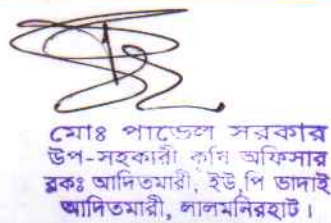 মোঃ পাভেল সরকার
উপ-সহকারী কৃষি অফিসার
ব্লকঃ আদিতমারী, ইউ,পি ভাদাই
আদিতমারী, লালমনিরহাট।